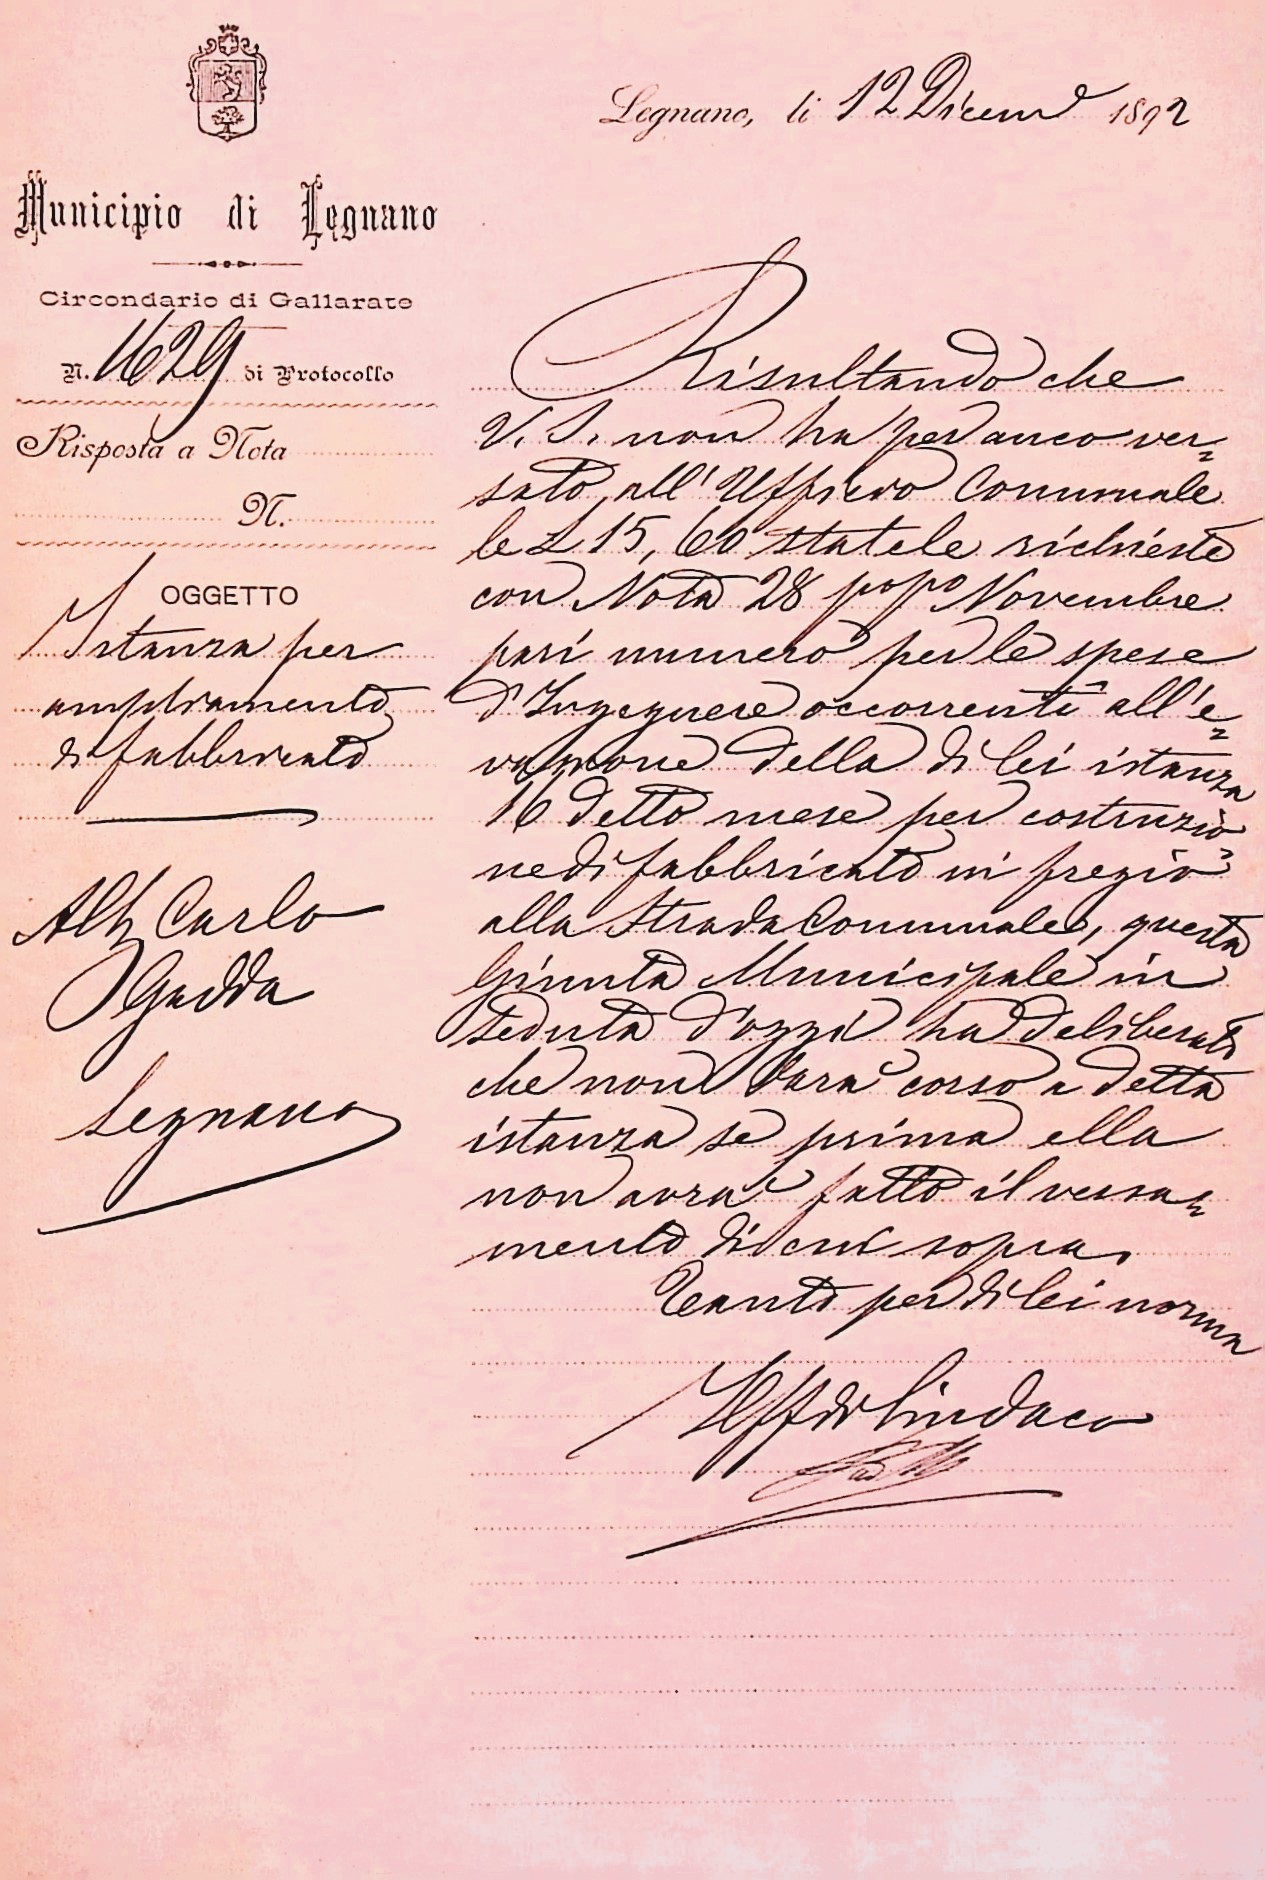 Legnano, li 12 Dicem^e 1892
Municipio di Legnano
Circondario di Gallarate
N. 1629 di Protocollo
Risposta a Nota
N.
OGGETTO
Istanza per
ampliamento
di fabbricato
Carlo
Gadda
Legnano
Risultando che
V. S. non ha per anco ver=
sato all'Ufficio Comunale
le L 15,60 statele richieste
con Nota 28 p°p° Novembre
pari numero per le spese
d'Ingegnere occorrenti all'e=
vasione della di lei istanza
16 detto mese per costruzio=
ne di fabbricato in fregio
alla Strada Comunale, questa
Giunta Municipale in
seduta d'oggi ha deliberato
che non darà corso a detta
istanza se prima ella
non avrà fatto il versa=
mento di cui sopra.
Tanto per di lei norma
Il ff di Sindaco